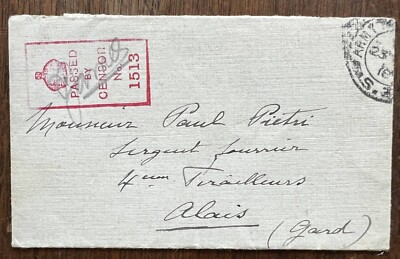 PASSED
BY
CENSOR
No.
1513
ARM
Monsieur Paul Pietri
Sergent fourrier
4eme Tirailleurs
Alais
(Gard)